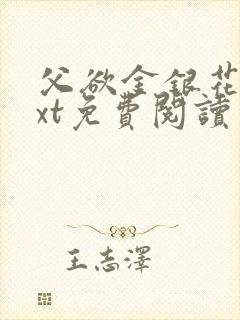 父欲金銀花
xt免費閱讀
王志澤